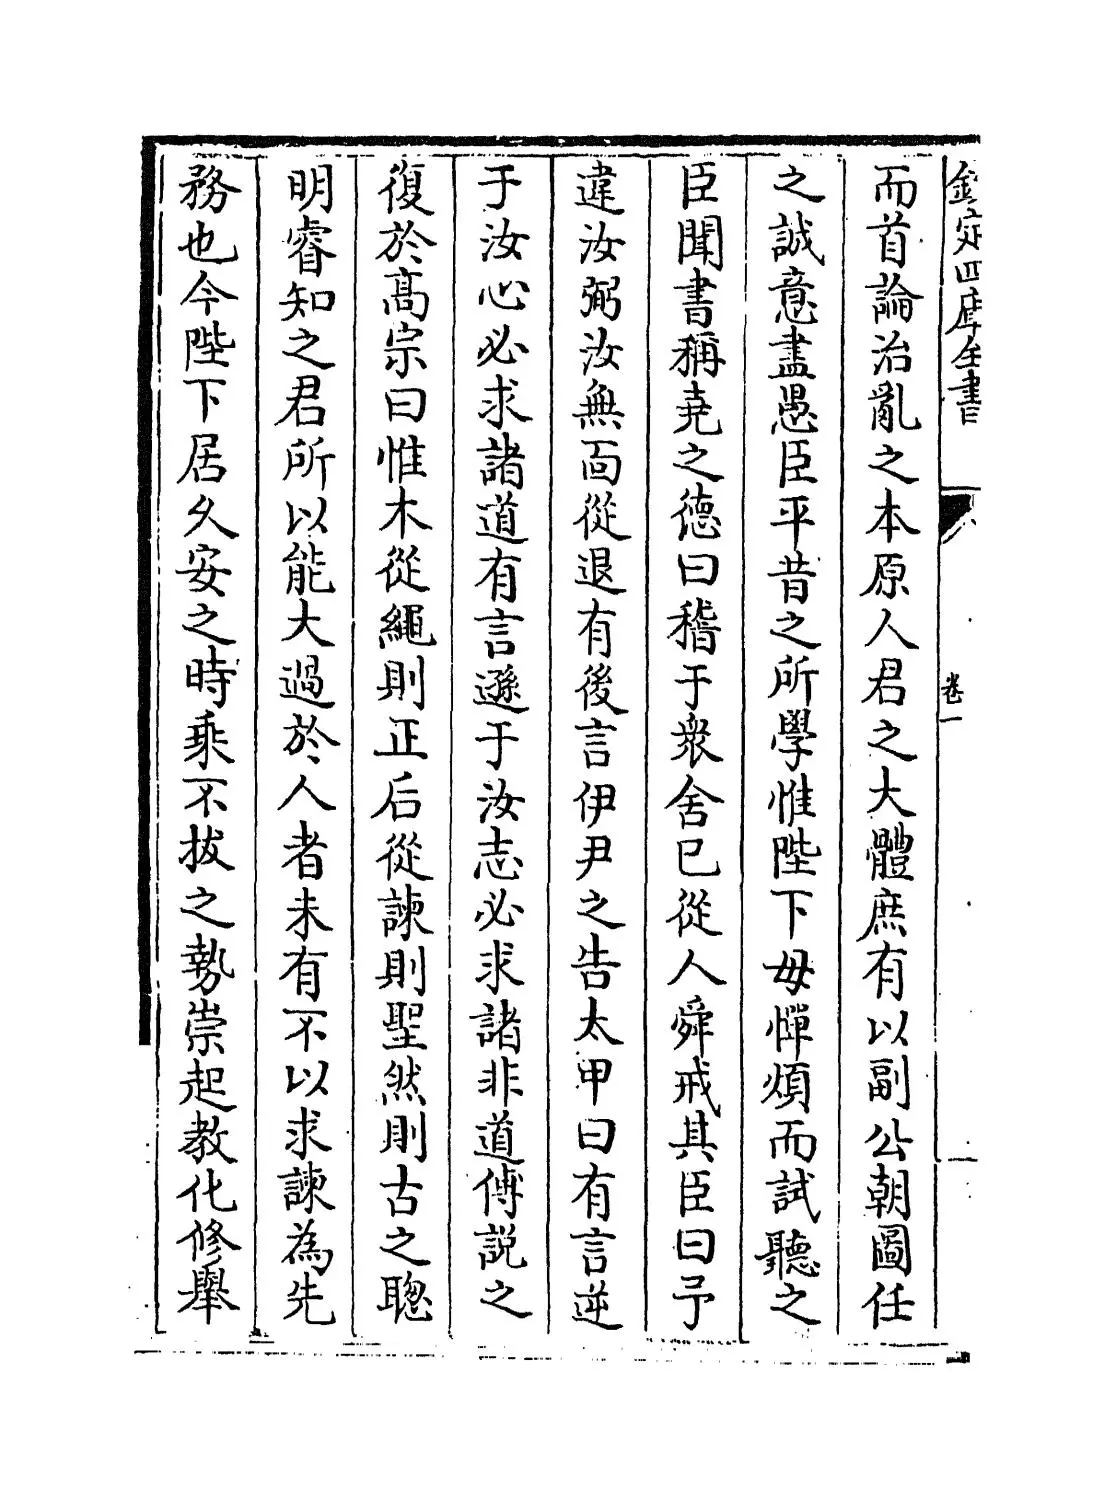 欽定四庫全書
卷一
一
而首論治亂之本原人君之大體庶有以副公朝圖任
之誠意盡愚臣平昔之所學惟陛下毋憚煩而試聽之
臣聞書稱堯之德曰稽于衆舍已從人舜戒其臣曰予
違汝弼汝無面從退有後言伊尹之告太甲曰有言逆
于汝心必求諸道有言遜于汝志必求諸非道傅説之
復於髙宗曰惟木從繩則正后從諫則聖然則古之聰
明睿知之君所以能大過於人者未有不以求諫為先
務也今陛下居久安之時乗不拔之勢崇起教化修舉